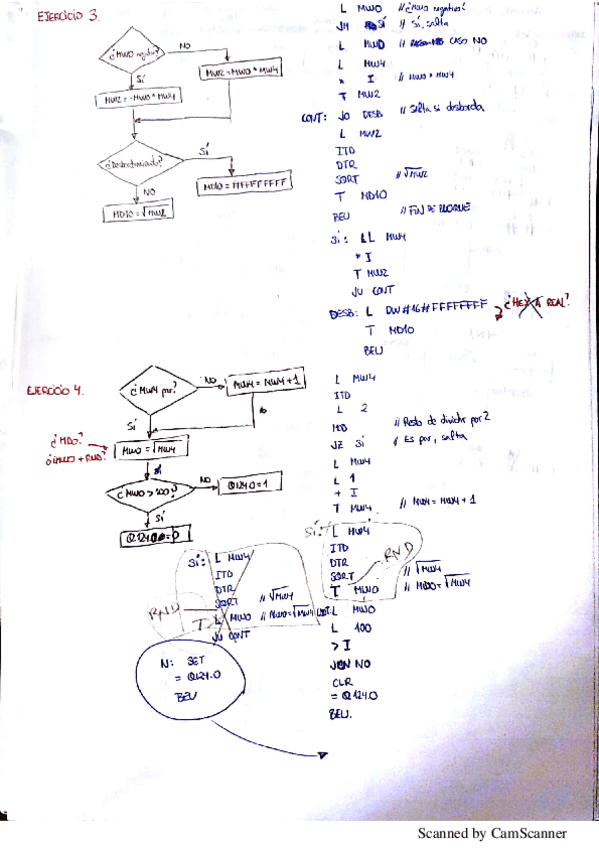 EJERCICIO 3.
¿MW0 negativo?
NO
SÍ
MW2=MW0*MW4
MW2=-MW0*MW4
¿Desbordamiento?
SÍ
NO
MD10=FFFFFFFF
MD10=√MW2
L MW0 // ¿MW0 negativo?
JM SÍ // Sí, salta
L MW0 // CASO NO
L MW4
* I // MW0 * MW4
T MW2
CONT: JO DESB // Salta si desborda
L MW2
ITD
DTR
SQRT // √MW2
T MD10
BEU // FIN DE BLOQUE
SÍ: L MW4
* I
T MW2
JU CONT
DESB: L DW#16#FFFFFFFF ¿HEX A REAL?
T MD10
BEU
EJERCICIO 4.
¿MW4 par?
NO
MW4 = MW4+1
SÍ
¿MD0?
¿MW0 + RND?
MW0 = √MW4
¿MW0 > 100?
NO
Q124.0=1
SÍ
Q124.0=0
L MW4
ITD
L 2
MOD // Resto de dividir por 2
JZ SÍ // Es par, salta
L MW4
L 1
+ I
T MW4 // MW4 = MW4 + 1
SÍ: L MW4
ITD
DTR
SQRT // √MW4
RND
T MW0 // MW0=√MW4
L MW0
L 100
> I
JCN NO
CLR
= Q124.0
BEU.
SÍ: L MW4
ITD
DTR
SQRT // √MW4
RND
T MW0 // MW0=√MW4
JU CONT
N: SET
= Q124.0
BEU
Scanned by CamScanner